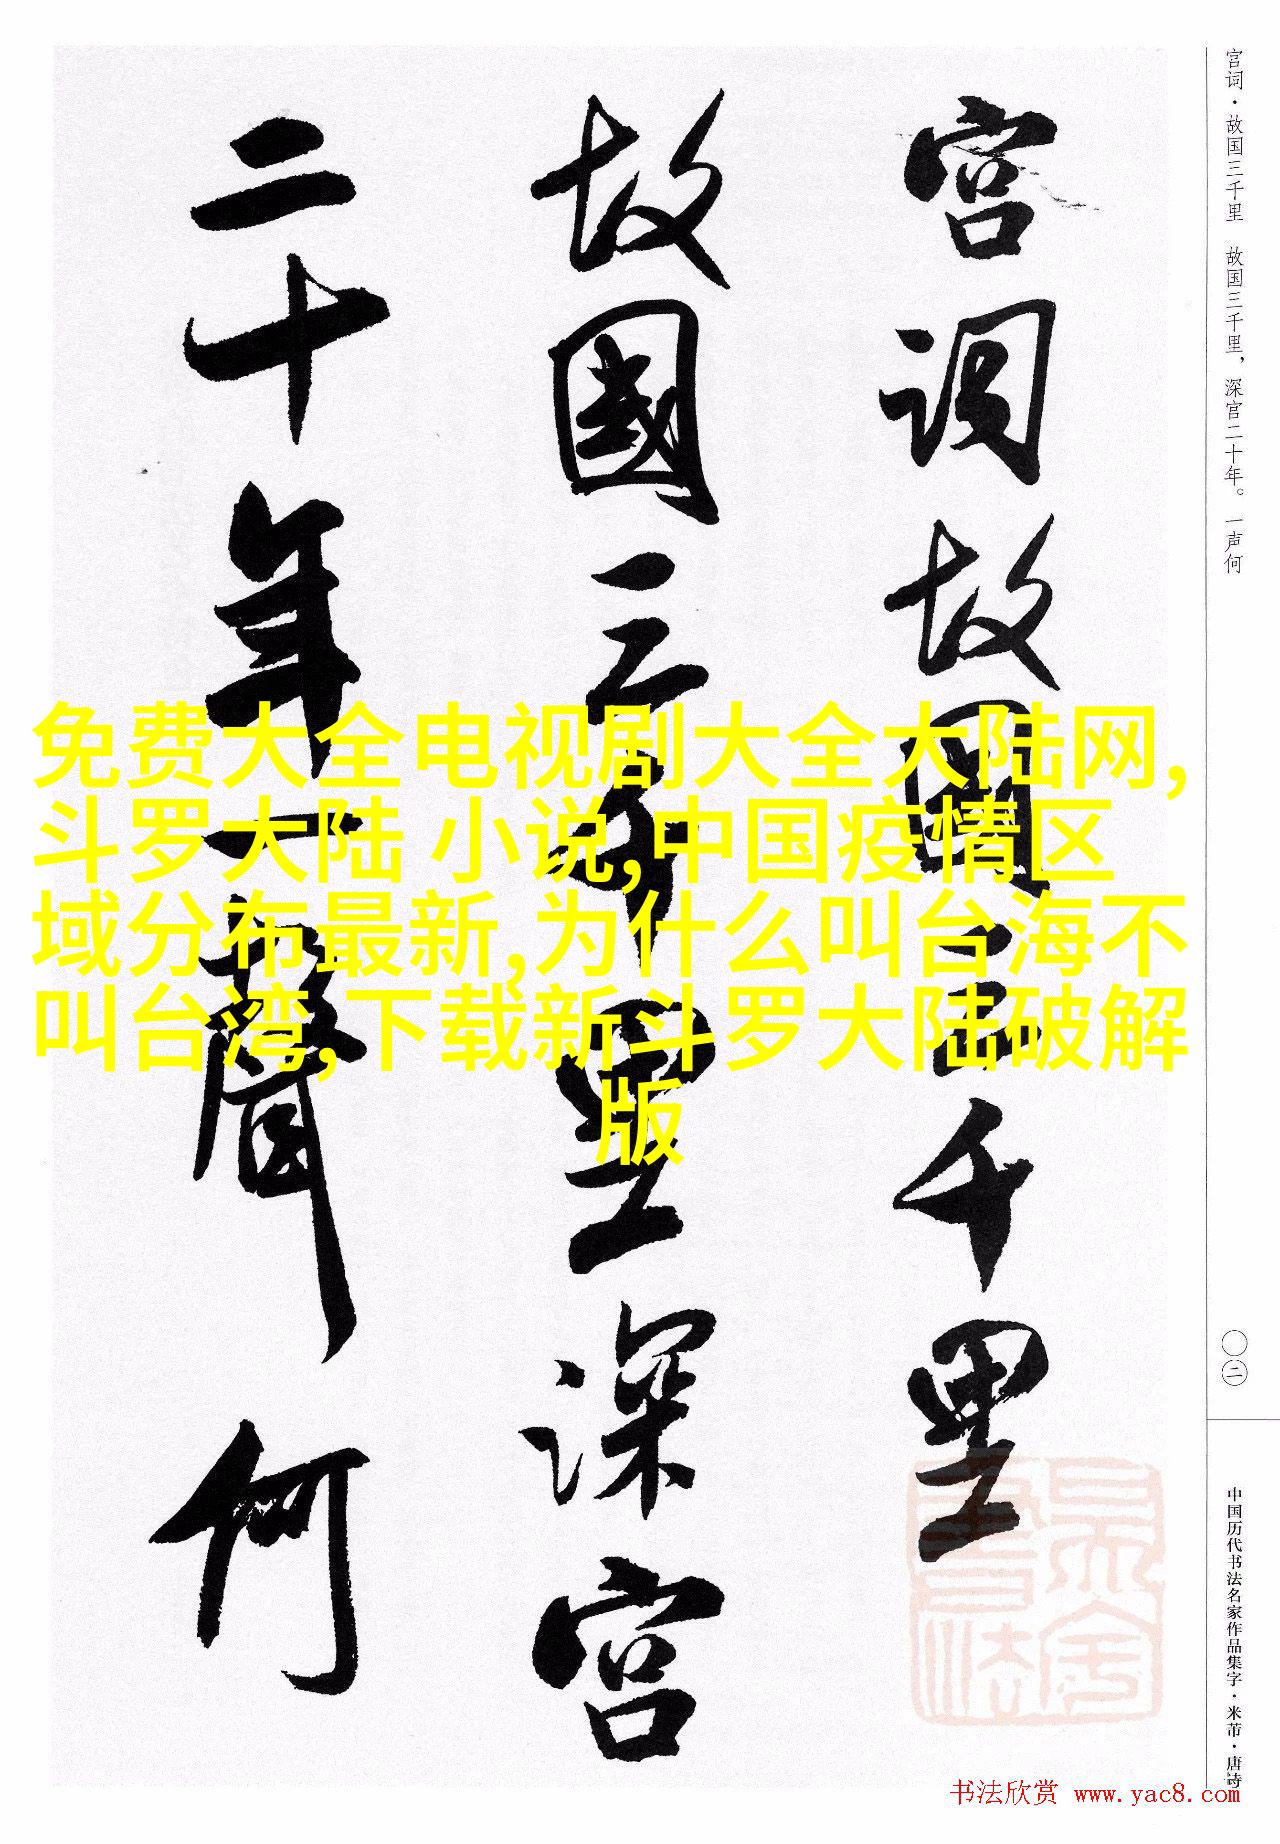 宫词故國三千里
故國三千里深宫
二十年一聲何
免费大全电视剧大全大陆网,
斗罗大陆 小说,中国疫情区
域分布最新,为什么叫台海不
叫台湾,下载新斗罗大陆破解
版
宫词·故国三千里 故国三千里，深宫二十年。一声何
〇二
中国历代书法名家作品集字·米芾·唐诗
书法欣赏 www.yac8.com